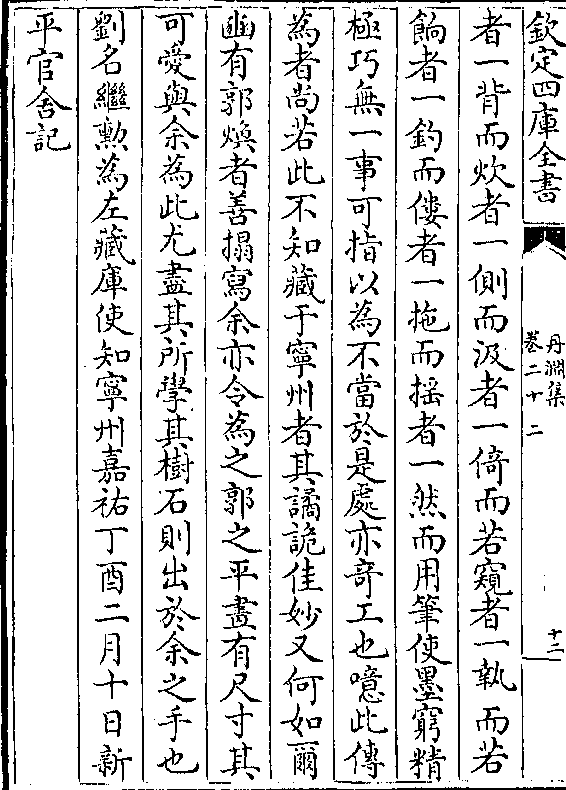 欽定四庫全書
丹淵集
卷二十二
十二
者一背而炊者一側而汲者一倚而若窺者一執而若
餉者一釣而僂者一拖而揺者一然而用筆使墨窮精
極巧無一事可指以為不當於是處亦竒工也噫此傳
為者尚若此不知藏于寧州者其譎詭佳妙又何如爾
豳有郭煥者善搨寫余亦令為之郭之平畫有尺寸其
可愛與余為此尤盡其所學其樹石則出於余之手也
劉名繼勲為左藏庫使知寧州嘉祐丁酉二月十日新
平官舍記